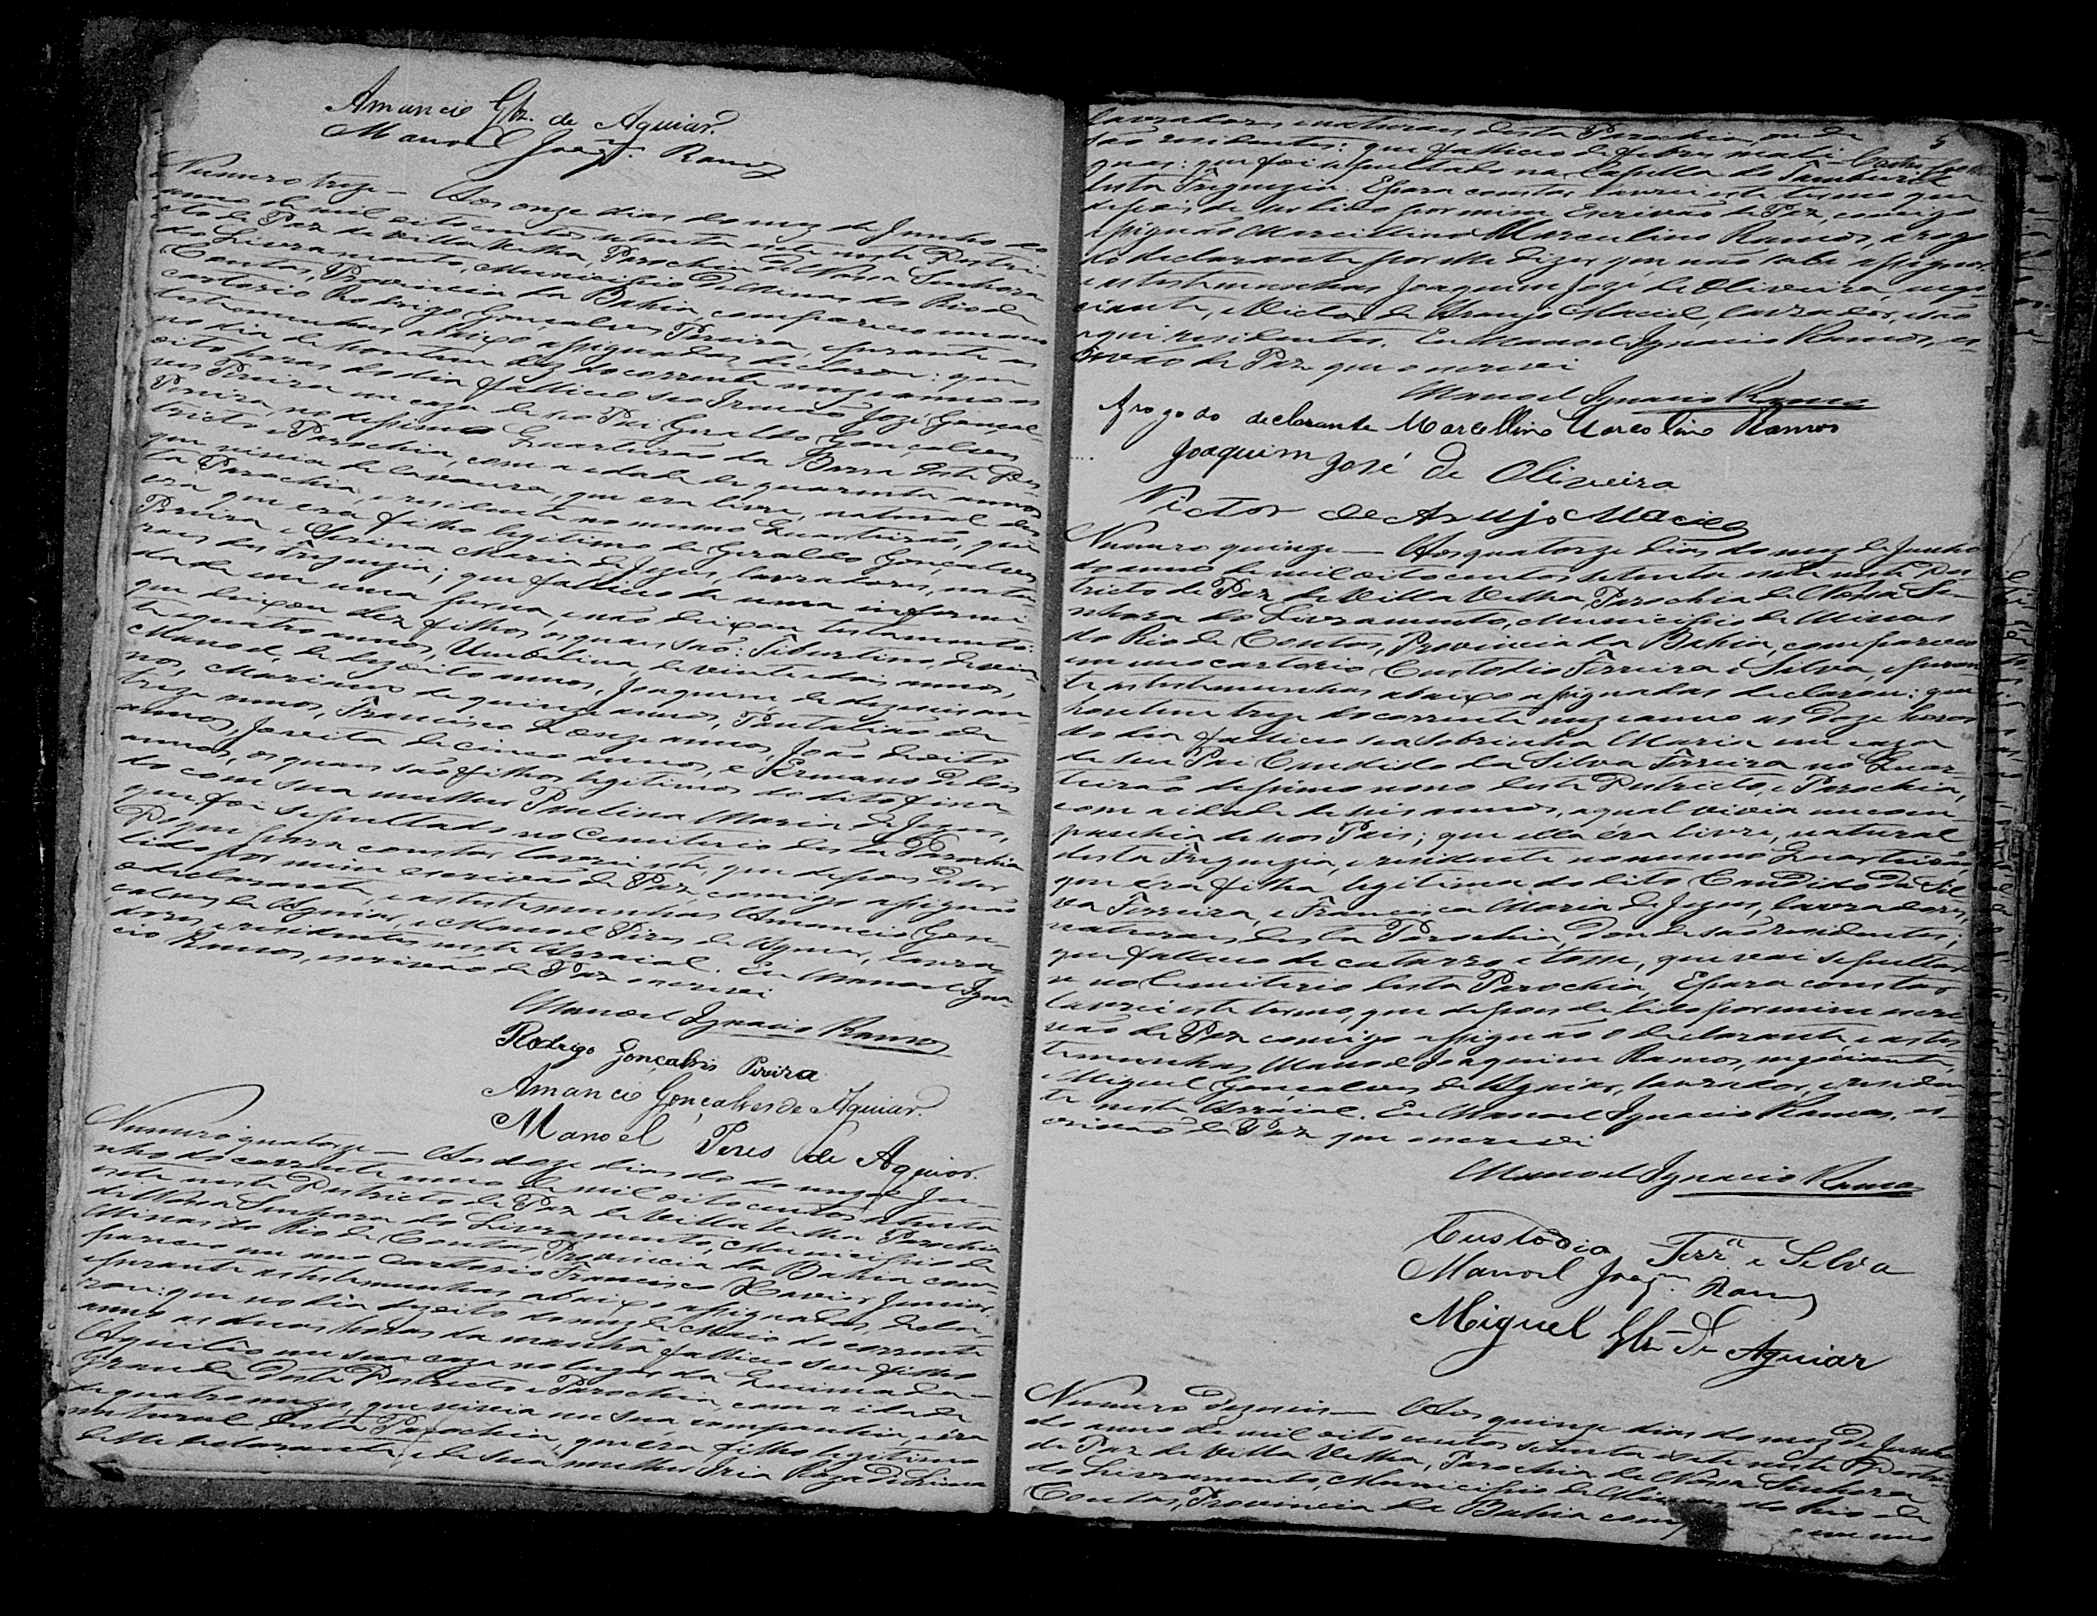 Amancio Glz. de Aguiar.
Manoel Joaqm. Ramos
Numero treze — Aos onze dias do mez de Junho do
anno de mil oito centos setenta e sete neste Destri-
cto de Paz de Villa Velha, Parochia de Nossa Senhora
do Livramento, Municipio de Minas do Rio de
Contas, Provincia da Bahia, compareceo em meu
cartorio Rodrigo Gonçalves Pereira, e perante as
testemunhas abaixo assignadas declarou: que
no dia de hontem dez do corrente mez e anno as
oito horas do dia falleceo seo Irmão José Gonçal-
ves Pereira em caza de seo Pai Geraldo Gonçalves
Pereira, no Quarteirão da Barra deste Des-
tricto e Parochia, com a idade de quarenta annos
que vivia de lavoura, que era livre, natural des-
ta Parochia e residente no mesmo Quarteirão, que
era que era filho legitimo de Geraldo Gonçalves
Pereira e Maria de Jezus, lavradores, natu-
raes da Freguezia; que falleceo de uma infermi-
dade em uma perna, e não deixou testamento:
que deixou dez filhos os quais são: Tiburtino, de vin-
te quatro annos, Umbelina, de vinte dois annos,
Manoel, de dezoito annos, Joaquim, de dezeseis an-
nos, Mariano de quinze annos, Pantalião de
treze annos, Francisco de onze annos, João de oito
annos, Jovita de cinco annos, e Germano de dois
annos, os quais são filhos legitimos do dito fina-
do com sua mulher Paulina Maria de Jezus,
que foi sepultado no Cemiterio desta Parochia
Do que para constar lavrei este, que depois de ser
lido por mim escrivão de Paz, comigo assignão
o declarante, e as testemunhas Amancio Gon-
çalves de Aguiar, e Manoel Pires de Aguiar, lavra-
dores, e residentes neste Arraial. Eu Manoel Igna-
cio Ramos, escrivão de Paz o escrevi
Manoel Ignacio Ramos
Rodrigo Gonçalvis Pereira
Amancio Gonçalves de Aguiar.
Manoel Peres de Aguiar.
Numero quatorze — Aos doze dias do mez de Ju-
nho do corrente anno de mil oito centos setenta
e sete neste Destricto de Paz de Villa Velha Parochia
de Nossa Senhora do Livramento, Municipio de
Minas do Rio de Contas, Provincia da Bahia com-
pareceo em meo Cartorio Francisco Xavier Junior,
e perante as testemunhas abaixo assignadas, decla-
rou: que no dia dezoito do mez de Maio do corrente
anno as duas horas da manhã falleceo seu filho
Aquilão em sua caza no lugar da Queimada-
Grande deste Destricto e Parochia, com a idade
de quatro mezes, que vivia em sua companhia, e era
natural desta Parochia, que era filho legitimo
delle declarante, e de sua mulher Iria Roza de Lima
5
lavradores, e naturaes desta Parochia, onde
são residentes: que falleceo de febres
que foi sepultado na Capella do
desta Freguezia. E para constar lavrei este termo que
depois de ser lido por mim Escrivão de Paz, comigo
assignão Marcellino Marcolino Ramos, a rogo
do declarante por elle dizer que não sabe assignar,
e as testemunhas Joaquim José de Oliveira, nego-
ciante, e Victor de Araujo Maciel, lavrador, e são
aqui residentes. Eu Manoel Ignacio Ramos, es-
crivão de Paz que o escrevi
Manoel Ignacio Ramos
Arogo do declarante Marcellino Marcolino Ramos
Joaquim José de Oliveira
Victor de Araujo Maciel
Numero quinze — Aos quatorze dias do mez de Junho
do anno de mil oito centos setenta e sete neste Des-
tricto de Paz de Villa Velha, Parochia de Nossa Se-
nhora do Livramento, Municipio de Minas
do Rio de Contas, Provincia da Bahia, compareceo
em meo cartorio Custodio Ferreira e Silva, e peran-
te as testemunhas abaixo assignadas declarou: que
hontem treze do corrente mez e anno as doze horas
do dia falleceo sua sobrinha Maria em caza
de seu Pai Candido da Silva Ferreira no Quar-
teirão decimo nono deste Destricto, e Parochia,
com a idade de seis annos, a qual vivia em com-
panhia de seos Pais; que ella era livre, natural
desta Freguezia, e residente no mesmo Quarteirão,
que era filha legitima do dito Candido da Sil-
va Ferreira, e Francisca Maria de Jezus, lavradores,
naturaes desta Parochia, donde são residentes;
que falleceo de catarro e tosse, que vai sepultar-
se no Cemiterio desta Parochia, E para constar
lavrei este termo, que depois de lido por mim escri-
vão de Paz comigo assignão o declarante, e as tes-
temunhas Manoel Joaquim Ramos, negociante,
e Miguel Gonçalves de Aguiar, lavrador, e residen-
te neste Arraial. Eu Manoel Ignacio Ramos, es-
crivão de Paz que o escrevi
Manoel Ignacio Ramos
Custodio Ferra. e Silva
Manoel Joaqm. Ramos
Miguel Glz de Aguiar
Numero dezeseis — Aos quinze dias do mez de Junho
do anno de mil oito centos setenta e sete neste Destri-
de Paz de Villa Velha, Parochia de Nossa Senhora
do Livramento, Municipio de Minas do Rio de
Contas, Provincia da Bahia comp em meo